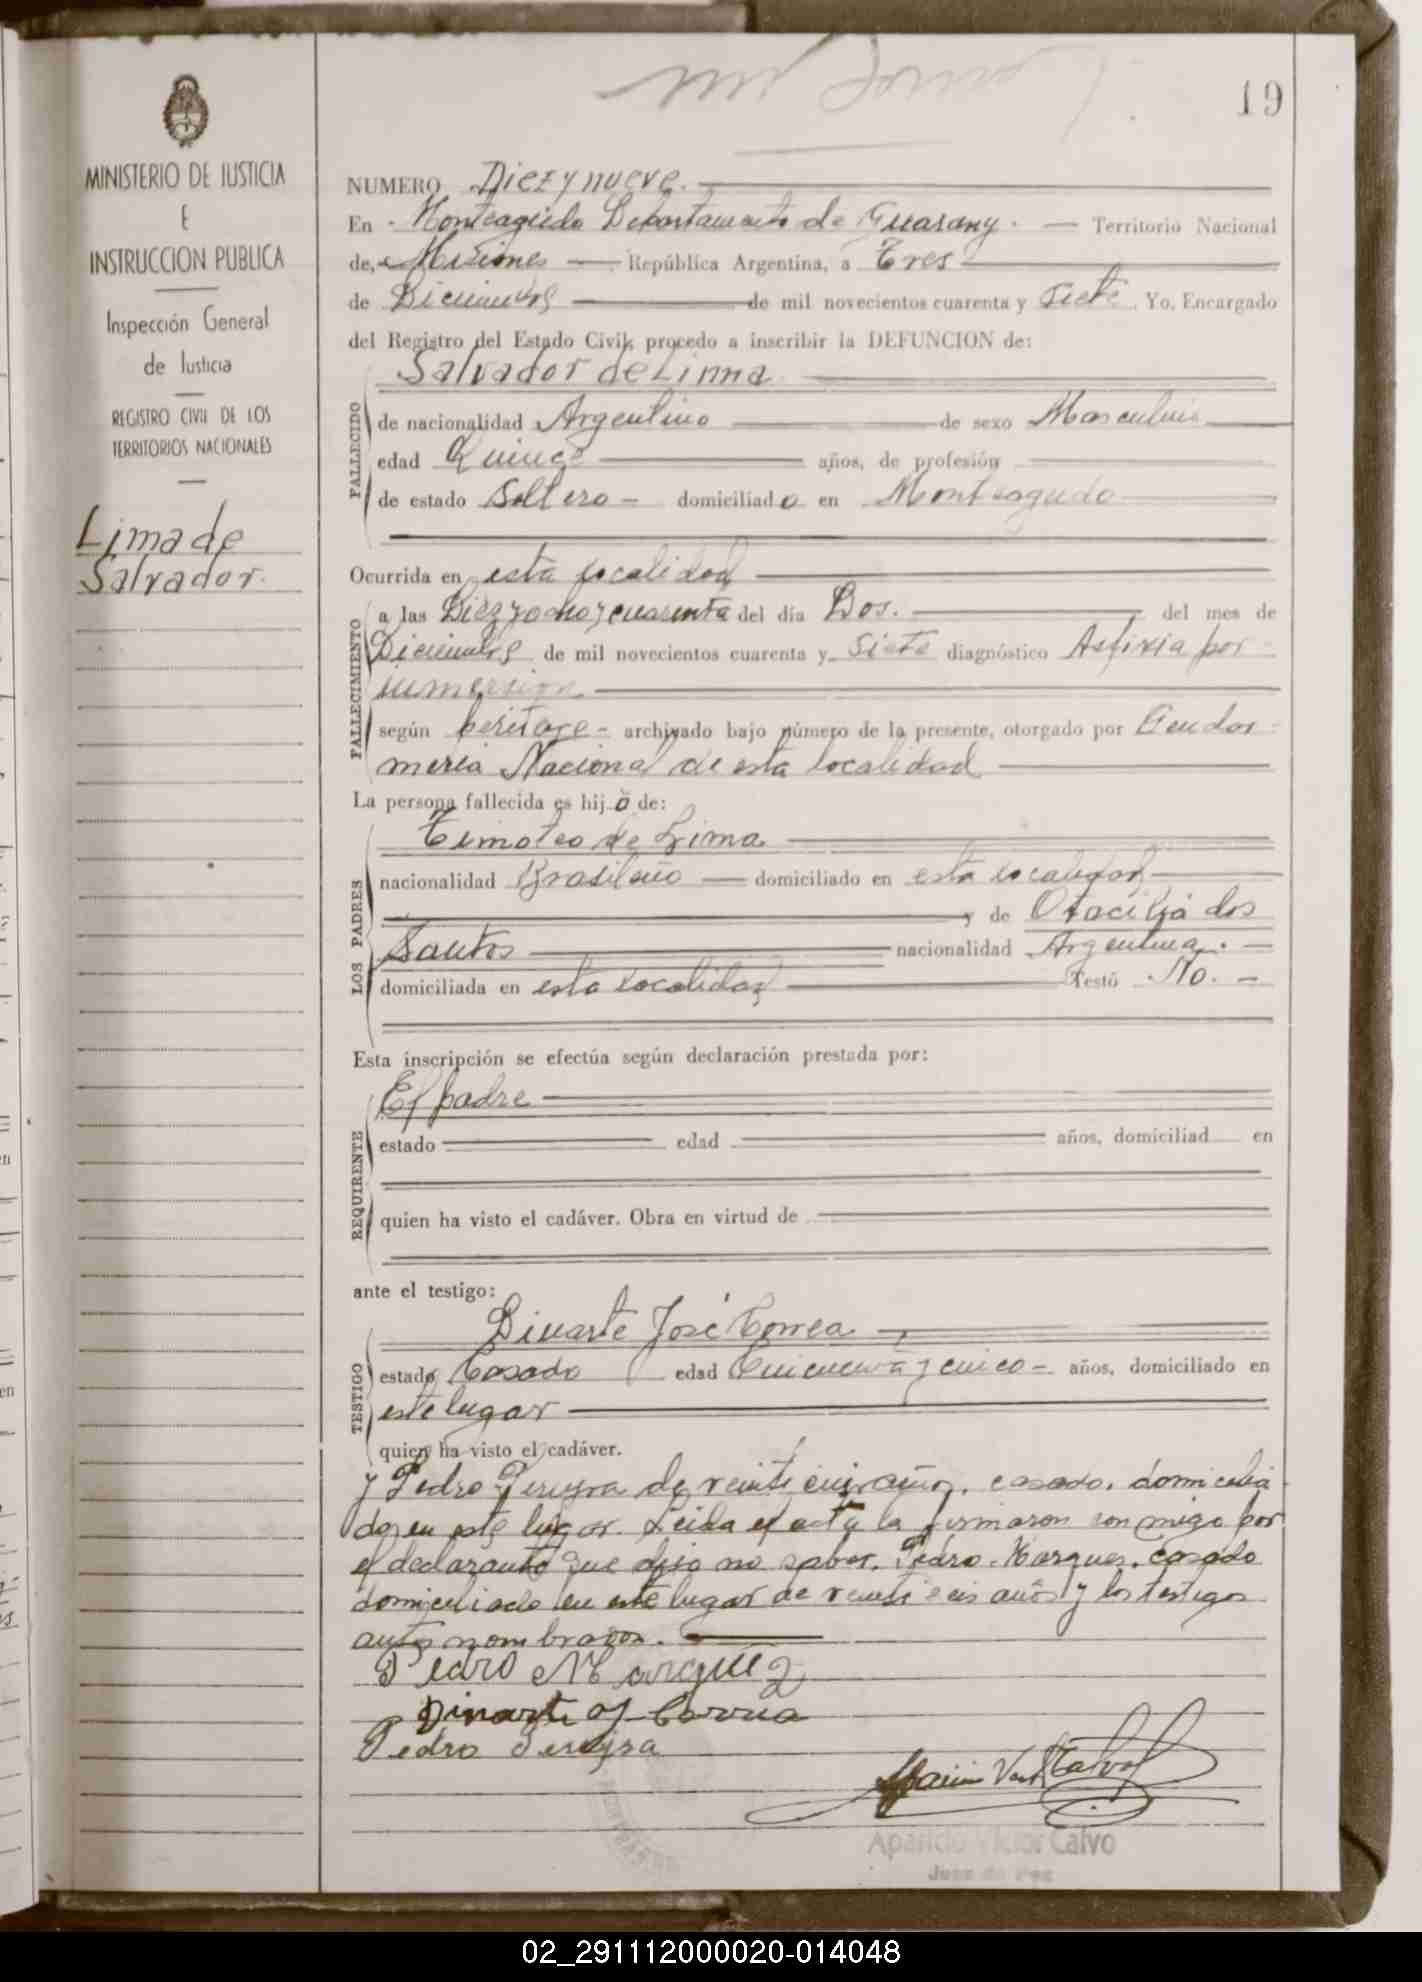 19
MINISTERIO DE JUSTICIA
E
INSTRUCCION PUBLICA
Inspección General
de Justicia
REGISTRO CIVIL DE LOS
TERRITORIOS NACIONALES
Lima de
Salvador.
NUMERO Diez y nueve.
En Monteagudo Departamento de Guarany. Territorio Nacional
de, Misiones República Argentina, a Tres
de Diciembre de mil novecientos cuarenta y siete. Yo, Encargado
del Registro del Estado Civil, procedo a inscribir la DEFUNCION de:
Salvador de Lima
FALLECIDO
de nacionalidad Argentino de sexo Masculino
edad Quince años, de profesión
de estado Soltero - domiciliado en Monteagudo
Ocurrida en esta localidad
FALLECIMIENTO
a las Diez y ocho y cuarenta del día Dos. del mes de
Diciembre de mil novecientos cuarenta y siete diagnóstico Asfixia por
inmersion
según peritage - archivado bajo número de la presente, otorgado por Gendar-
meria Nacional de esta localidad
La persona fallecida es hijo de:
LOS PADRES
Timoteo de Lima
nacionalidad Brasileño domiciliado en esta localidad
y de Otacilia dos
Santos nacionalidad Argentina.
domiciliada en esta localidad Testó No. -
Esta inscripción se efectúa según declaración prestada por:
REQUIRENTE
El padre
estado edad años, domiciliad en
quien ha visto el cadáver. Obra en virtud de
ante el testigo:
TESTIGO
Dinarte José Correa
estado Casado edad Cincuenta y cinco - años, domiciliado en
este lugar
quien ha visto el cadáver.
y Pedro Pereyra de veinte años, casado, domicilia
do en este lugar. Leida el acta la firmaron conmigo por
el declarante que dijo no saber, Pedro Marques, casado
domiciliado en este lugar de veintiseis años y los testigos
antes nombrados.
Pedro Marquez
Dinarte J Correa
Pedro Pereyra
Aparicio Victor Calvo
Juez de Paz
02_291112000020-014048